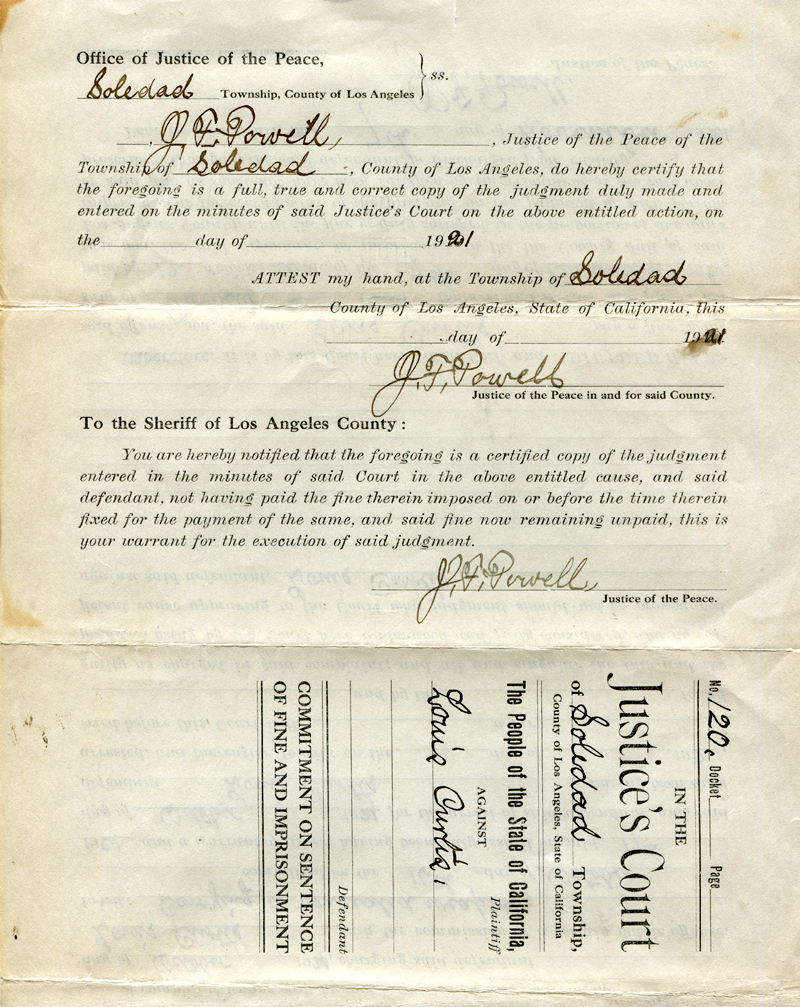 Office of Justice of the Peace,
Soledad Township, County of Los Angeles } ss.
J. F. Powell, , Justice of the Peace of the
Township of Soledad , County of Los Angeles, do hereby certify that
the foregoing is a full, true and correct copy of the judgment duly made and
entered on the minutes of said Justice's Court on the above entitled action, on
the day of 1921
ATTEST my hand, at the Township of Soledad
County of Los Angeles, State of California, this
day of 1921.
J. F. Powell
Justice of the Peace in and for said County.
To the Sheriff of Los Angeles County:
You are hereby notified that the foregoing is a certified copy of the judgment
entered in the minutes of said Court in the above entitled cause, and said
defendant, not having paid the fine therein imposed on or before the time therein
fixed for the payment of the same, and said fine now remaining unpaid, this is
your warrant for the execution of said judgment.
J. F. Powell,
Justice of the Peace.
No. 120. Docket Page
IN THE
Justice's Court
of Soledad Township,
County of Los Angeles, State of California
The People of the State of California,
Plaintiff
AGAINST
Louis Curtis,
Defendant
COMMITMENT ON SENTENCE
OF FINE AND IMPRISONMENT